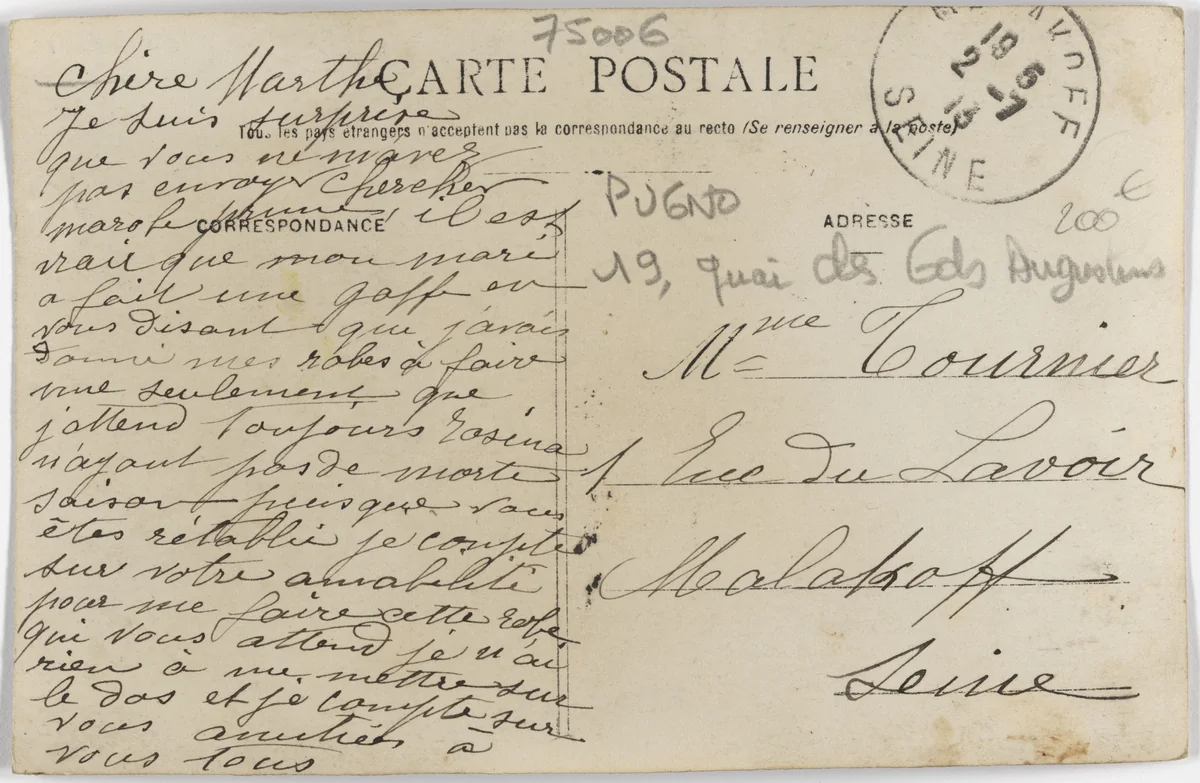 75006
CARTE POSTALE
Tous les pays étrangers n'acceptent pas la correspondance au recto (Se renseigner à la poste)
CORRESPONDANCE
Chère Marthe
Je suis surprise
que vous ne m'avez
pas envoyer chercher
ma robe prune, il est
vrai que mon mari
a fait une gaff en
vous disant que j'avais
donné mes robes à faire
une seulement que
j'attend toujours Rosina
n'ayant pas de morte
saison puisque vous
êtes rétablie je compte
sur votre amabilité
pour me faire cette robe
qui vous attend je n'ai
rien à me mettre sur
le dos et je compte sur
vous amitiés à
vous tous
19 5
2 -7
13
SEINE
ADRESSE
PUGNO
200 €
19, quai des Gds Augustins
Mme Tournier
1 Rue du Lavoir
Malakoff
Seine